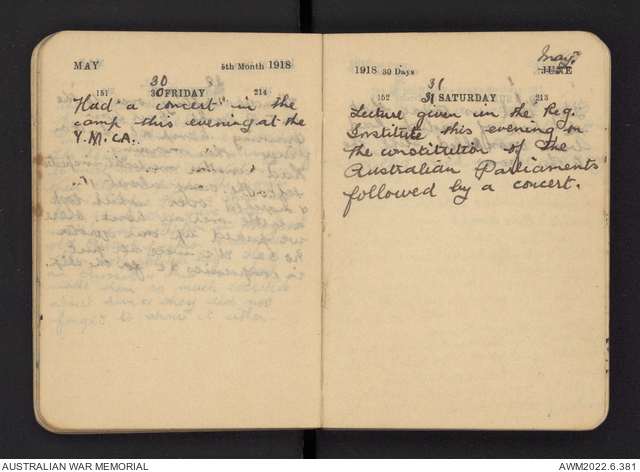 MAY 5th Month 1918
30
151 30 FRIDAY 214
Had a concert in the
camp this evening at the
Y.M.C.A.
May
1918 30 Days JUNE
31
152 31 SATURDAY 213
Lecture given in the Reg.
Institute this evening on
the constitution of the
Australian Parliaments
followed by a concert.
AUSTRALIAN WAR MEMORIAL
AWM2022.6.381